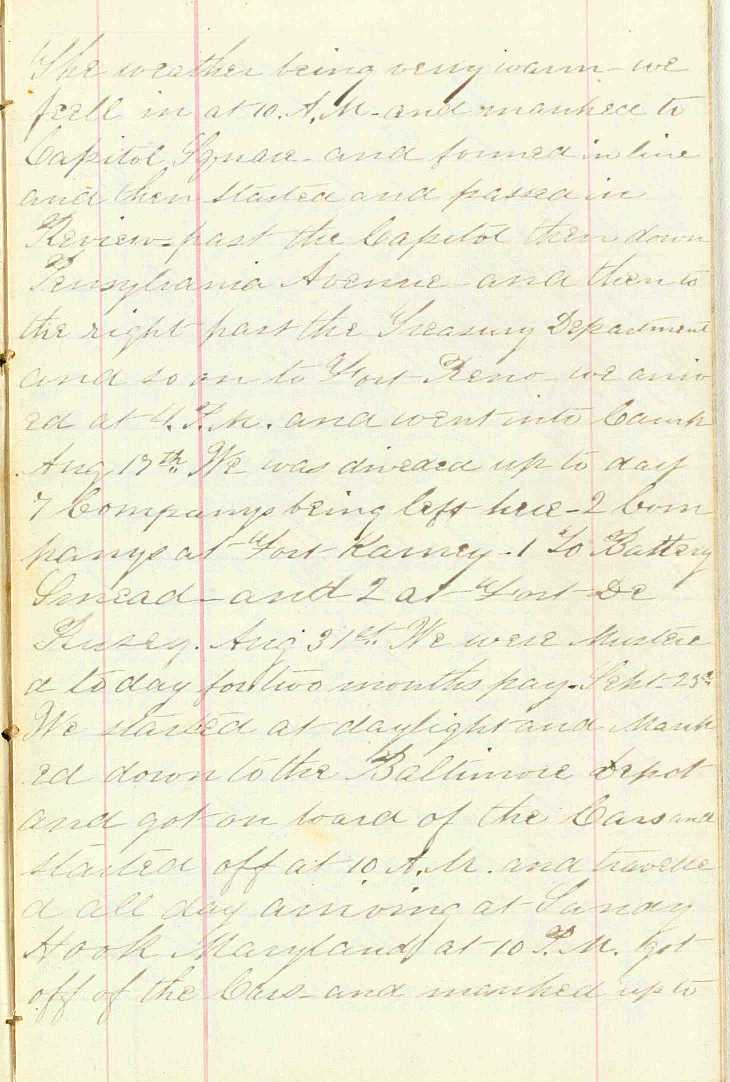 The weather being verry warm - we
feell in at 10. A.M - and marched to
Capitol Square - and formed in line
and then started and passed in
Review - past the Capitol then down
Pensylvania Avenue - and then to
the right past the Treasury Department
and so on to Fort Reno - we arriv
ed at 4. P.M. and went into Camp
Aug 17th We was diveded up to day
7 Companys being left here - 2 Com
panys at Fort Karney - 1 To Battery
Smead - and 2 at Fort De
Rusey. Aug 31st We were Mustere
d to day for two months pay - Sept - 23d
We started at daylight and March
ed down to the Baltimore depot
and got on board of the Cars and
started off at 10 A.M. and travelle
d all day arriving at Sandy
Hook Maryland at 10 P.M. got
off of the Cars - and marched up to